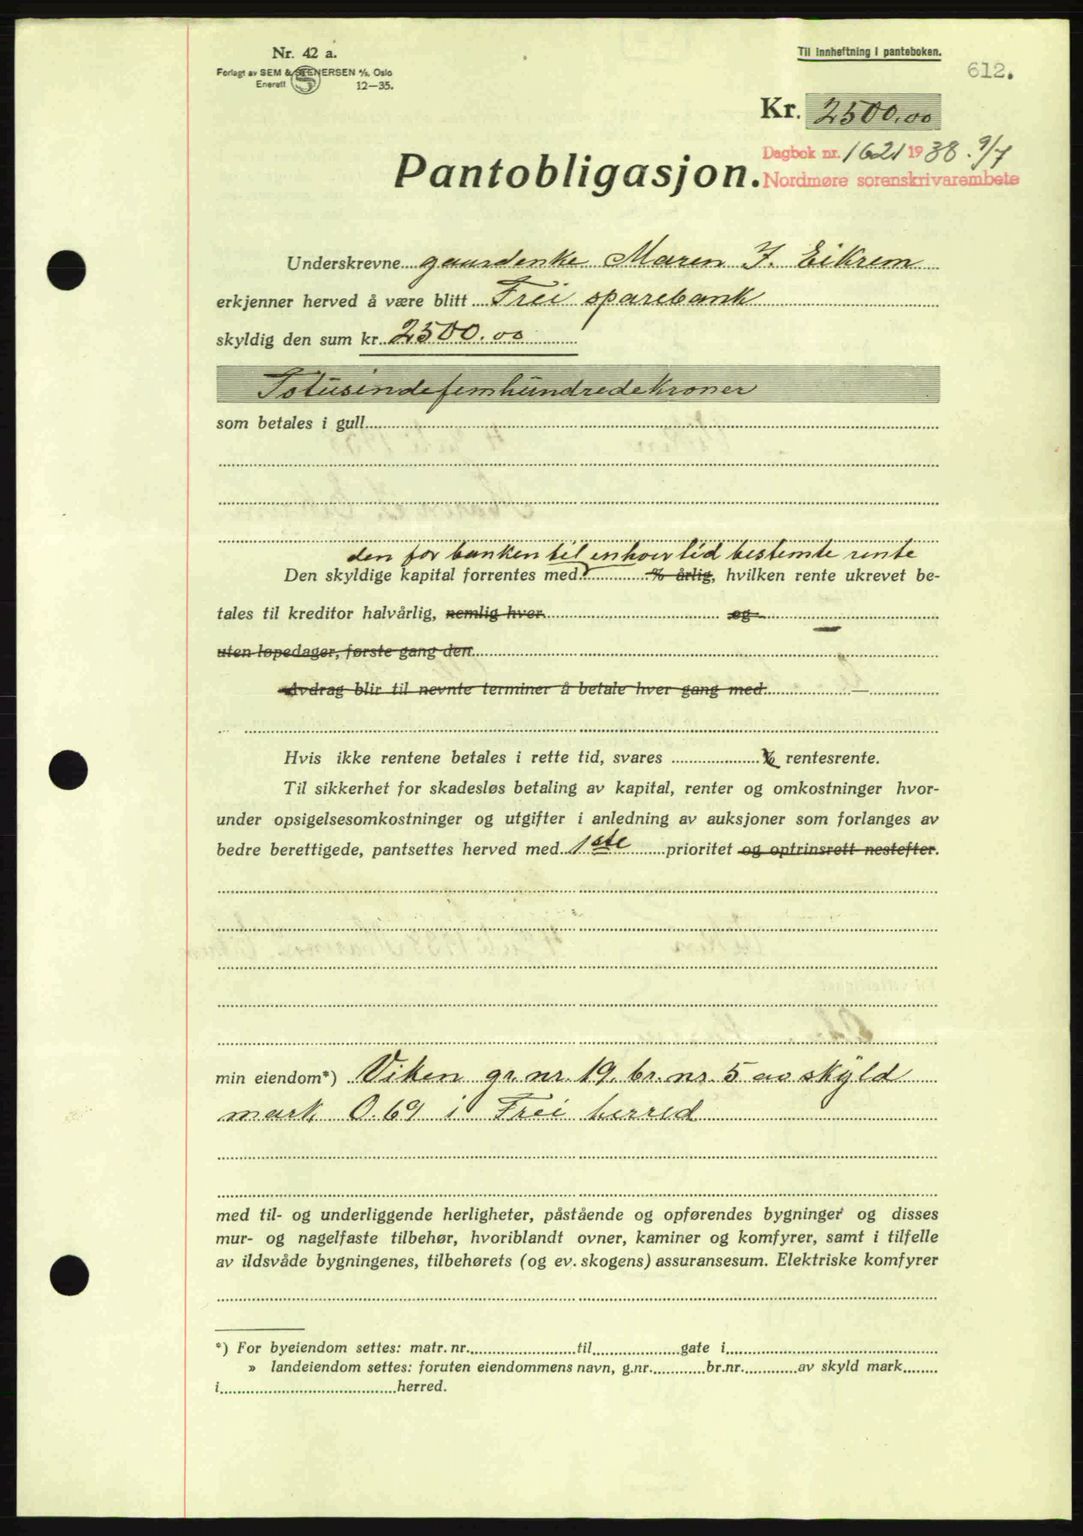 Nr. 42 a.
Forlagt av SEM & STENERSEN A/S, Oslo
Enerett 12—35.
Til innheftning i panteboken.
612.
Kr. 2500.00
Dagbok nr. 1621 1938. 9/7
Nordmøre sorenskrivarembete
Pantobligasjon.
Underskrevne gaardenke Maren J. Eikrem
erkjenner herved å være blitt Frei sparebank
skyldig den sum kr. 2500.00
Totusindefemhundredekroner
som betales i gull
den for banken til enhver tid bestemte rente
Den skyldige kapital forrentes med % årlig, hvilken rente ukrevet be-
tales til kreditor halvårlig, nemlig hver og
uten løpedager, første gang den
Avdrag blir til nevnte terminer å betale hver gang med
Hvis ikke rentene betales i rette tid, svares % rentesrente.
Til sikkerhet for skadesløs betaling av kapital, renter og omkostninger hvor-
under opsigelsesomkostninger og utgifter i anledning av auksjoner som forlanges av
bedre berettigede, pantsettes herved med 1ste prioritet og optrinsrett nestefter.
min eiendom*) Viken gr. nr. 19. br. nr. 5 av skyld
mark 0.69 i Frei herred
med til- og underliggende herligheter, påstående og opførendes bygninger og disses
mur- og nagelfaste tilbehør, hvoriblandt ovner, kaminer og komfyrer, samt i tilfelle
av ildsvåde bygningenes, tilbehørets (og ev. skogens) assuransesum. Elektriske komfyrer
*) For byeiendom settes: matr. nr. til gate i
» landeiendom settes: foruten eiendommens navn, g.nr. br.nr. av skyld mark
i herred.